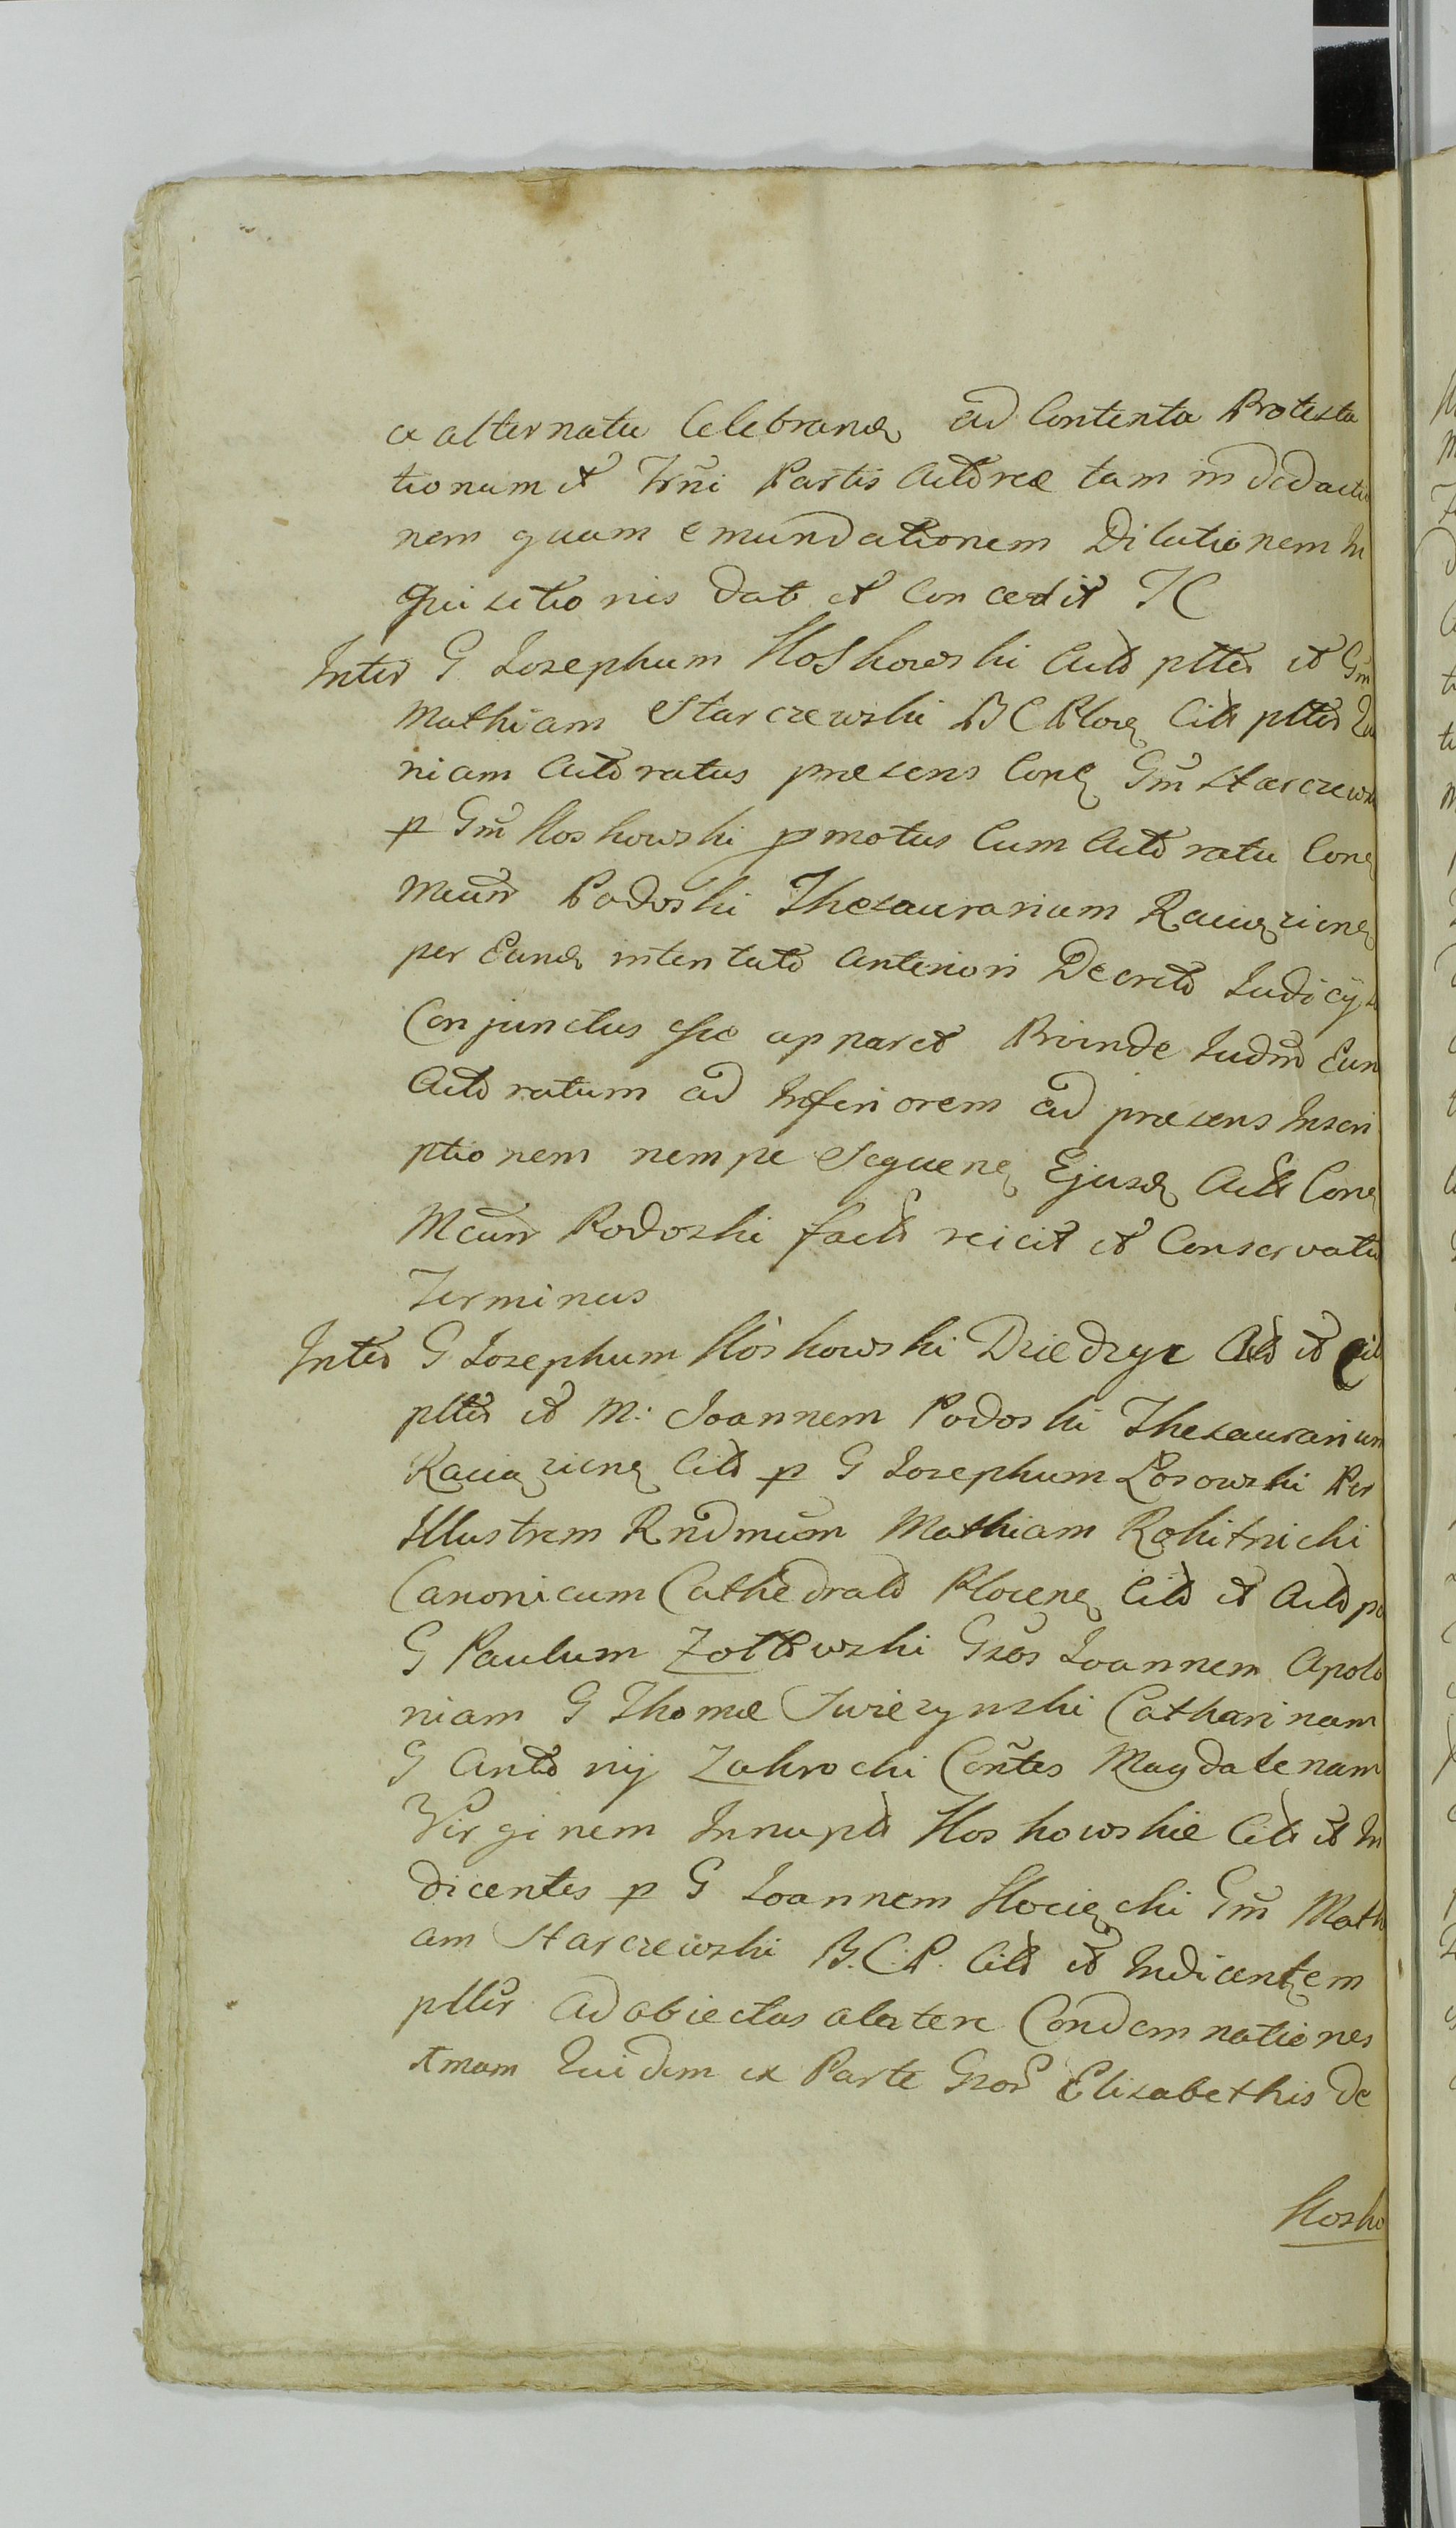 ex alternatu Celebranđ ad Contenta Protesta
tionum et Trñi Partis Actoreæ tam in deductio
nem quam emundationem Dilationem In
quisitionis dat et Concedit TC
Inter G Josephum Koskowski Actõ plltes et Gm
Mathiam Starczewski BC Ploce Citt plltes
niam Actoratus præsens Conẽ Gm̃ Starczews
p Gm̃ Koskowski pmotus Cum Actoratu Conẽ
Mcum Podoski Thesaurarium Raciążienẽ
per Eunđ intentato Anteriori Decreto Judicÿ
Conjunctus esse apparet Proinde Judm̃ Eun
Actoratum ad Inferiorem ad præsens Inscri
ptionem nempe Sequenẽ Ejusđ Actt Conẽ
Mcum Podoski facts reicit et Conservatu
Terminus
Inter G Josephum Koskowski Dziedzyc Actt et Cit
plltes et M: Joannem Podoski Thesaurarium
Raciążienẽ Citt p G Josephum Łosowski Per
Illustrem Rndmũm Mathiam Rokitnicki
Canonicum Cathedralẽ Plocenẽ Citt et Actt p
G Paulum Zołtowski Gsos Joannem Apolo
niam G Thomæ Swiezynski Catharinam
G Antonij Zakrocki Coñtes Magdalenam
Virginem Innuptã Koskowskie Citt et In
dicentes p G Joannem Kocięcki Gm̃ Math
am Starczewski B.C.P. Citt et Indicentem
plltes ad obiectas alatere Condemnationes
1mam Quidem ex Parte Gsor Elisabethis de
Kosko